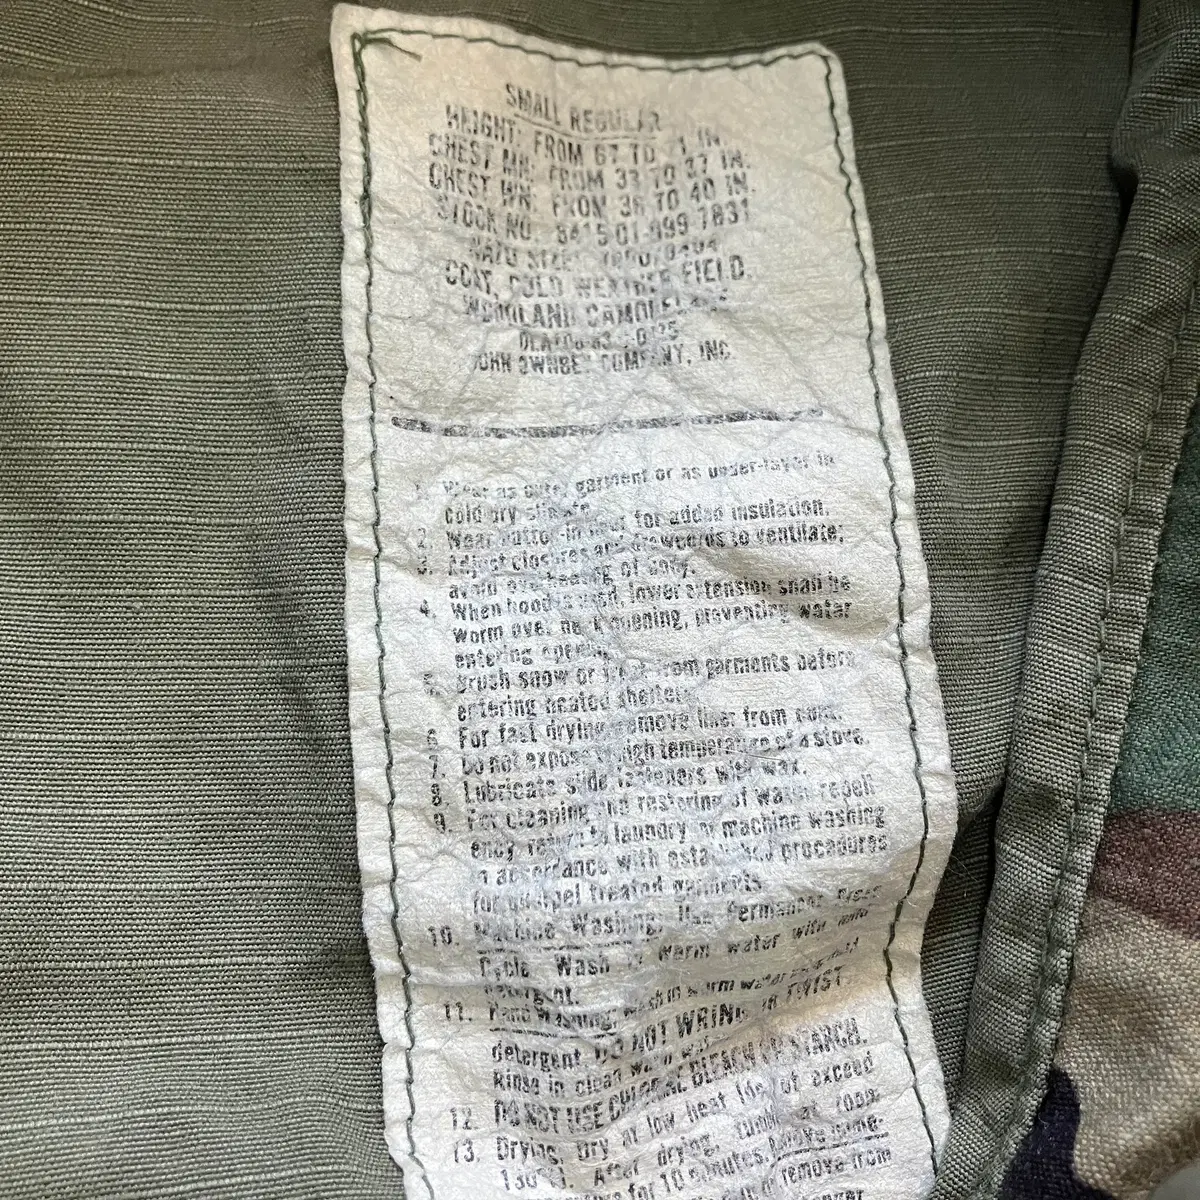 SMALL REGULAR
HEIGHT: FROM 67 TO 71 IN.
CHEST MN: FROM 33 TO 37 IN.
CHEST WN: FROM 36 TO 40 IN.
STOCK NO. 8415-01-099-7831
NATO SIZE:
COAT, COLD WEATHER FIELD.
WOODLAND CAMOUFLAGE
JOHN OWNBEY COMPANY, INC.
1. Wear as outer garment or as under-layer in
cold dry climate.
2. Wear button-in liner for added insulation.
3. Adjust closures and drawcords to ventilate;
avoid overheating of body.
4. When hood is used, lower extension shall be
worn over neck opening, preventing water
entering opening.
5. Brush snow or frost from garments before
entering heated shelters.
6. For fast drying remove liner from coat.
7. Do not expose to high temperature of a stove.
8. Lubricate slide fasteners with wax.
9. For cleaning and restoring of water repell-
ency return to laundry for machine washing
in accordance with established procedures
for quarpel treated garments.
10. Machine Washing: Use Permanent Press
Cycle. Wash in warm water with mild
detergent.
11. Hand Washing: Wash in warm water mild
detergent. DO NOT WRING or TWIST.
Rinse in clean warm water.
12. DO NOT USE CHLORINE BLEACH OR STARCH.
13. Drying: Dry at low heat (do not exceed
130°F). After drying, tumble at room
for 10 minutes. Remove
remove from